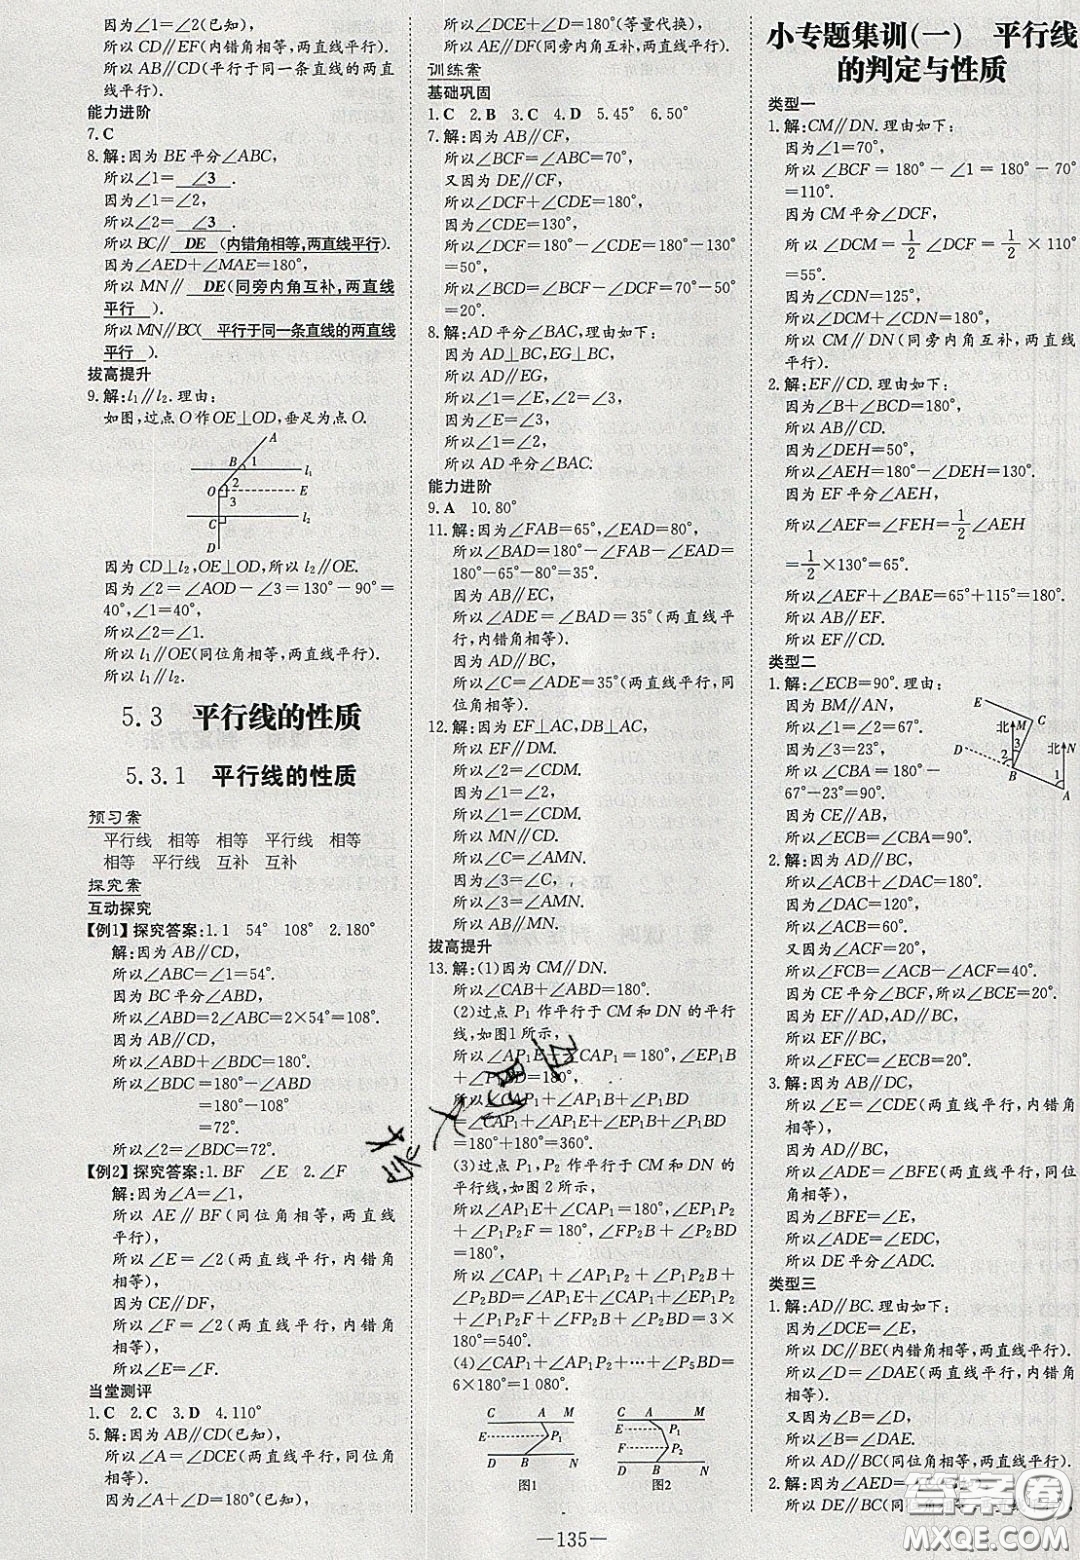 因为∠1=∠2(已知),
所以CD∥EF(内错角相等,两直线平行).
所以AB∥CD(平行于同一条直线的两直
线平行).
能力进阶
7.C
8.解:因为BE平分∠ABC,
所以∠1= ∠3 .
因为∠1=∠2,
所以∠2= ∠3 .
所以BC∥ DE (内错角相等,两直线平行).
因为∠AED+∠MAE=180°,
所以MN∥ DE(同旁内角互补,两直线
平行 ).
所以MN∥BC( 平行于同一条直线的两直线
平行 ).
拔高提升
9.解:l₁∥l₂.理由:
如图,过点O作OE⊥OD,垂足为点O.
A
B 1 l₁
O 2 E
3
C l₂
D
因为CD⊥l₂,OE⊥OD,所以l₂∥OE.
因为∠2=∠AOD-∠3=130°-90°=
40°,∠1=40°,
所以∠2=∠1.
所以l₁∥OE(同位角相等,两直线平行).
所以l₁∥l₂.
5.3 平行线的性质
5.3.1 平行线的性质
预习案
平行线 相等 相等 平行线 相等
相等 平行线 互补 互补
探究案
互动探究
【例1】探究答案:1.1 54° 108° 2.180°
解:因为AB∥CD,
所以∠ABC=∠1=54°.
因为BC平分∠ABD,
所以∠ABD=2∠ABC=2×54°=108°.
因为AB∥CD,
所以∠ABD+∠BDC=180°.
所以∠BDC=180°-∠ABD
=180°-108°
=72°.
所以∠2=∠BDC=72°.
【例2】探究答案:1.BF ∠E 2.∠F
解:因为∠A=∠1,
所以AE∥BF(同位角相等,两直线
平行),
所以∠E=∠2(两直线平行,内错角
相等),
因为CE∥DF,
所以∠F=∠2(两直线平行,内错角
相等),
所以∠E=∠F.
当堂测评
1.C 2.C 3.D 4.110°
5.解:因为AB∥CD(已知),
所以∠A=∠DCE(两直线平行,同位角
相等).
因为∠A+∠D=180°(已知),
所以∠DCE+∠D=180°(等量代换),
所以AE∥DF(同旁内角互补,两直线平行).
训练案
基础巩固
1.C 2.B 3.C 4.D 5.45° 6.50°
7.解:因为AB∥CF,
所以∠BCF=∠ABC=70°,
又因为DE∥CF,
所以∠DCF+∠CDE=180°,
因为∠CDE=130°,
所以∠DCF=180°-∠CDE=180°-130°
=50°,
所以∠BCD=∠BCF-∠DCF=70°-50°
=20°.
8.解:AD平分∠BAC,理由如下:
因为AD⊥BC,EG⊥BC,
所以AD∥EG.
所以∠1=∠E,∠2=∠3.
因为∠E=∠3,
所以∠1=∠2,
所以AD平分∠BAC.
能力进阶
9.A 10.80°
11.解:因为∠FAB=65°,∠EAD=80°,
所以∠BAD=180°-∠FAB-∠EAD=
180°-65°-80°=35°,
因为AB∥EC,
所以∠ADE=∠BAD=35°(两直线平
行,内错角相等).
因为AD∥BC,
所以∠C=∠ADE=35°(两直线平行,同
位角相等).
12.解:因为EF⊥AC,DB⊥AC,
所以EF∥DM.
所以∠2=∠CDM.
因为∠1=∠2,
所以∠1=∠CDM.
所以MN∥CD.
所以∠C=∠AMN.
因为∠3=∠C,
所以∠3=∠AMN.
所以AB∥MN.
拔高提升
13.解:(1)因为CM∥DN.
所以∠CAB+∠ABD=180°.
(2)过点P₁作平行于CM和DN的平行
线,如图1所示,
所以∠AP₁E+∠CAP₁=180°,∠EP₁B
+∠P₁BD=180°,
所以∠CAP₁+∠AP₁B+∠P₁BD
=∠CAP₁+∠AP₁E+∠EP₁B+∠P₁BD
=180°+180°=360°.
(3)过点P₁,P₂作平行于CM和DN的
平行线,如图2所示,
所以∠AP₁E+∠CAP₁=180°,∠EP₁P₂
+∠P₁P₂F=180°,∠FP₂B+∠P₂BD
=180°,
所以∠CAP₁+∠AP₁P₂+∠P₁P₂B+
∠P₂BD=∠CAP₁+∠AP₁E+∠EP₁P₂
+∠P₁P₂F+∠FP₂B+∠P₂BD=3×
180°=540°.
(4)∠CAP₁+∠AP₁P₂+⋯+∠P₅BD=
6×180°=1 080°.
C A M
E P₁
D B N
图1
C A M
E P₁
F P₂
D B N
图2
小专题集训(一) 平行线
的判定与性质
类型一
1.解:CM∥DN.理由如下:
因为∠1=70°,
所以∠BCF=180°-∠1=180°-70°
=110°.
因为CM平分∠DCF,
所以∠DCM=1/2∠DCF=1/2×110°
=55°.
因为∠CDN=125°,
所以∠DCM+∠CDN=180°.
所以CM∥DN(同旁内角互补,两直线
平行).
2.解:EF∥CD.理由如下:
因为∠B+∠BCD=180°,
所以AB∥CD.
因为∠DEH=50°,
所以∠AEH=180°-∠DEH=130°.
因为EF平分∠AEH,
所以∠AEF=∠FEH=1/2∠AEH
=1/2×130°=65°.
所以∠AEF+∠BAE=65°+115°=180°.
所以AB∥EF.
所以EF∥CD.
类型二
1.解:∠ECB=90°.理由:
因为BM∥AN,
所以∠2=∠1=67°.
因为∠3=23°,
所以∠CBA=180°-
67°-23°=90°.
因为EC∥AB,
所以∠ECB=∠CBA=90°.
E
北 M C
D 3 北 N
2
B 1
A
2.解:因为AD∥BC,
所以∠ACB+∠DAC=180°.
因为∠DAC=120°,
所以∠ACB=60°.
又因为∠ACF=20°,
所以∠FCB=∠ACB-∠ACF=40°.
因为CE平分∠BCF,所以∠BCE=20°.
因为EF∥AD,AD∥BC,
所以EF∥BC,
所以∠FEC=∠ECB=20°.
3.解:因为AB∥DC,
所以∠E=∠CDE(两直线平行,内错角
相等),
因为AD∥BC,
所以∠ADE=∠BFE(两直线平行,同位
角相等),
因为∠BFE=∠E,
所以∠ADE=∠EDC,
所以DE平分∠ADC.
类型三
1.解:AD∥BC.理由如下:
因为∠DCE=∠E,
所以DC∥BE(内错角相等,两直线平行).
所以∠D=∠DAE(两直线平行,内错角
相等).
又因为∠B=∠D,
所以∠B=∠DAE.
所以AD∥BC(同位角相等,两直线平行).
2.解:因为∠AED=
所以DE∥BC(同
—135—
答案圈
MXQE.COM